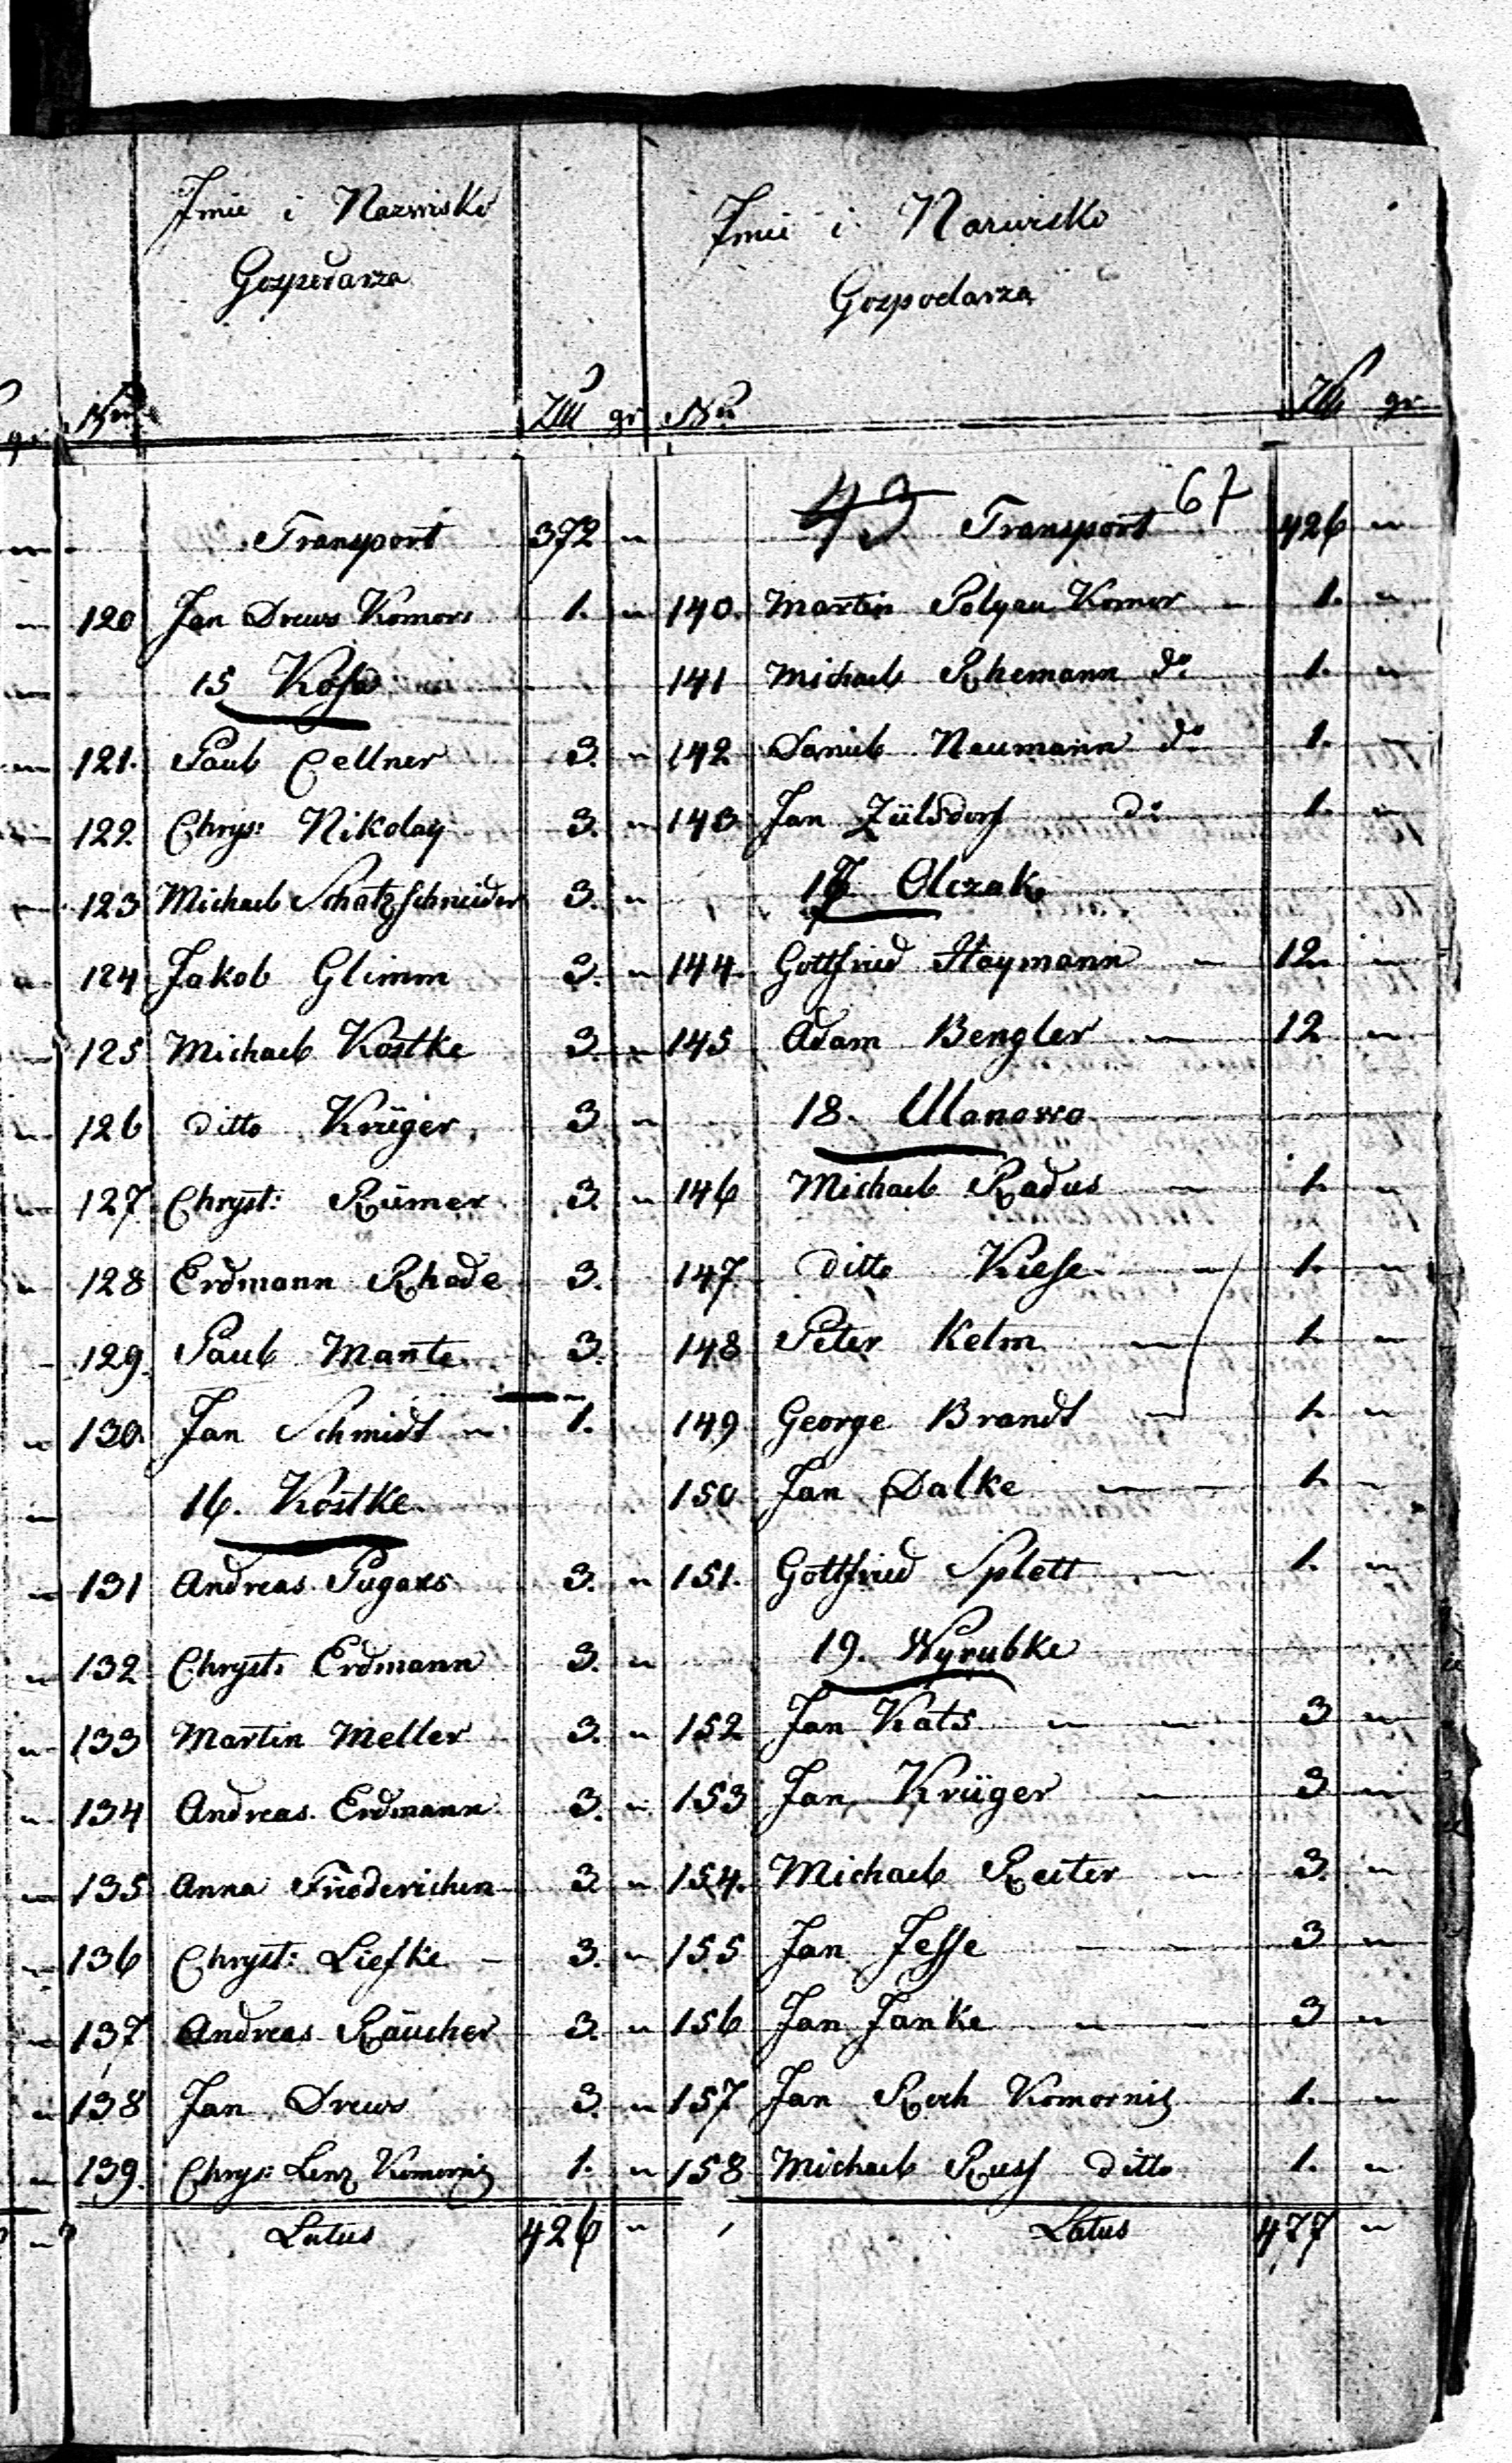 Imie i Nazwisko
Gospodarza
Nro Złł gr
Transport 372 "
120 Jan Drews Komor: 1. "
15 Koso
121. Paul Cellner 3. "
122. Chrys: Nikolay 3. "
123 Michael Schatzschneider 3. "
124 Jakob Glimm 3. "
125 Michael Kostke 3. "
126 ditto Krüger 3 "
127. Chryst: Rümer 3. "
128 Erdmann Rhode 3.
129. Paul Mante 3.
130. Jan Schmidt " 1.
16. Kostke
131 Andreas 3. "
132 Chryst: Erdmann 3. "
133 Martin Meller 3. "
134 Andreas Erdmann 3. "
135 Anna Friederichen 3 "
136 Chryst: Liefke 3. "
137 Andreas Räucher 3. "
138 Jan Drews 3. "
139. Chrys: Lenz Komorni 1. "
Latus 426 "
Imie i Nazwisko
Gospodarza
Nro Złł gr.
43 Transport 67 426 "
140. Martin Komor 1. "
141 Michael Rhemann do 1. "
142 Daniel Neumann do 1. "
143 Jan Zülsdorf do 1. "
17 Olczak
144. Gottfried Haymann 12. "
145 Adam Bengler 12 "
18. Ulanowo
146 Michael Radus 1. "
147 ditto Kiese 1. "
148 Peter Kelm 1. "
149 George Brandt 1. "
150 Jan Dalke 1. "
151. Gottfried Splett 1. "
19. Wyrubke
152 Jan Kats 3 "
153 Jan Krüger 3 "
154. Michael Reiter 3. "
155 Jan Jesse 3 "
156 Jan Janke 3 "
157 Jan Komorni 1. "
158 Michael Russ ditto 1. "
Latus 477 "